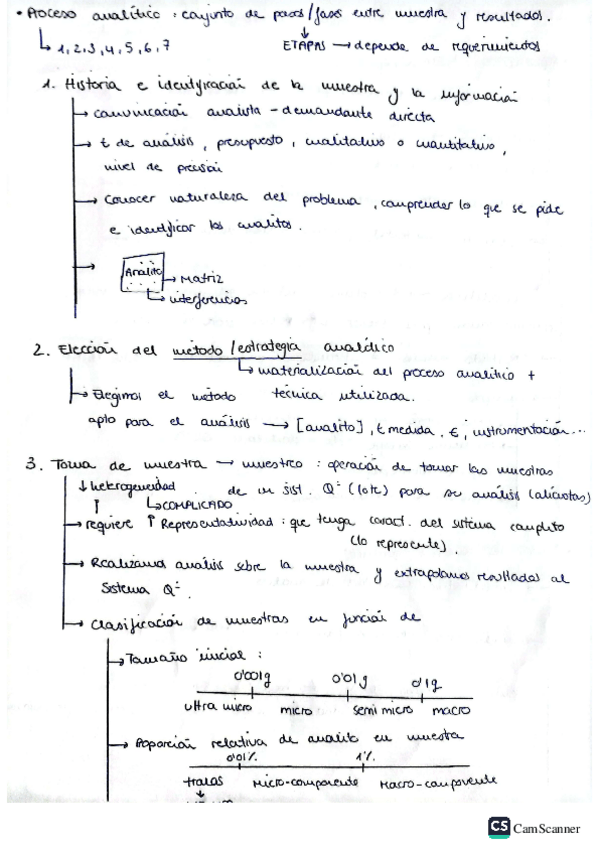 • Proceso analítico : conjunto de pasos/fases entre muestra y resultados.
↳ 1, 2, 3, 4, 5, 6, 7
ETAPAS → depende de requerimientos
1. Historia e identificación de la muestra y la información
→ comunicación analista - demandante directa
→ t de análisis, presupuesto, cualitativo o cuantitativo,
nivel de precisión
→ Conocer naturaleza del problema, comprender lo que se pide
e identificar los analitos.
→ Analito → Matriz
↳ interferencias
2. Elección del método/estrategia analítico
↳ materialización del proceso analítico +
técnica utilizada.
→ Elegimos el método
apto para el análisis → [analito], t medida, €, instrumentación...
3. Toma de muestra → muestreo : operación de tomar las muestras
↓ heterogeneidad de un sist. Qº (lote) para su análisis (alícuotas)
↑ ↳ COMPLICADO
→ requiere ↑ Representatividad : que tenga caract. del sistema completo
(lo represente).
→ Realizamos análisis sobre la muestra y extrapolamos resultados al
Sistema Qº.
→ Clasificación de muestras en función de
→ Tamaño inicial :
0'001g 0'01g 0'1g
ultra micro micro semi micro macro
→ Proporción relativa de analito en muestra
0'01% 1%
trazas Micro-componente Macro-componente
CS CamScanner